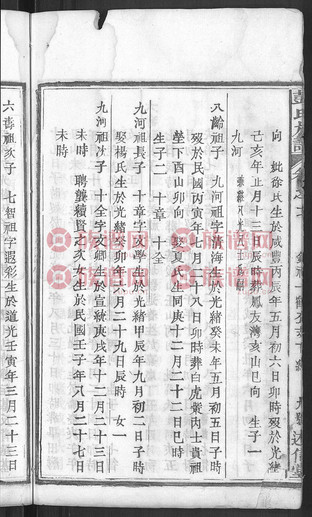 向 妣徐氏生於咸豐丙辰年五月初六日卯時歿於光緒
己亥年正月十三日辰時葬鳳友灣亥山巳向 生子一
九河
八齡祖子 九河祖字濱海生於光緒癸未年五月初五日子時
歿於民國丙寅年七月二十八日卯時葬白虎嶺內士貴祖
塋下酉山卯向 娶夏氏生同庚十二月二十二日巳時
生子二 十章 十全
九河祖長子 十章字文學生於光緒甲辰年九月初二日子時
娶楊氏生於光緒癸卯年六月二十九日辰時 女一
九河祖次子 十全字文卿生於宣統庚戌年十二月二十三日
未時 聘龔續賢之次女生於民國壬子年八月二十七日
未時
六壽祖次子 七智祖字遐彩生於道光壬寅年三月二十三日
彭氏族譜
述信堂